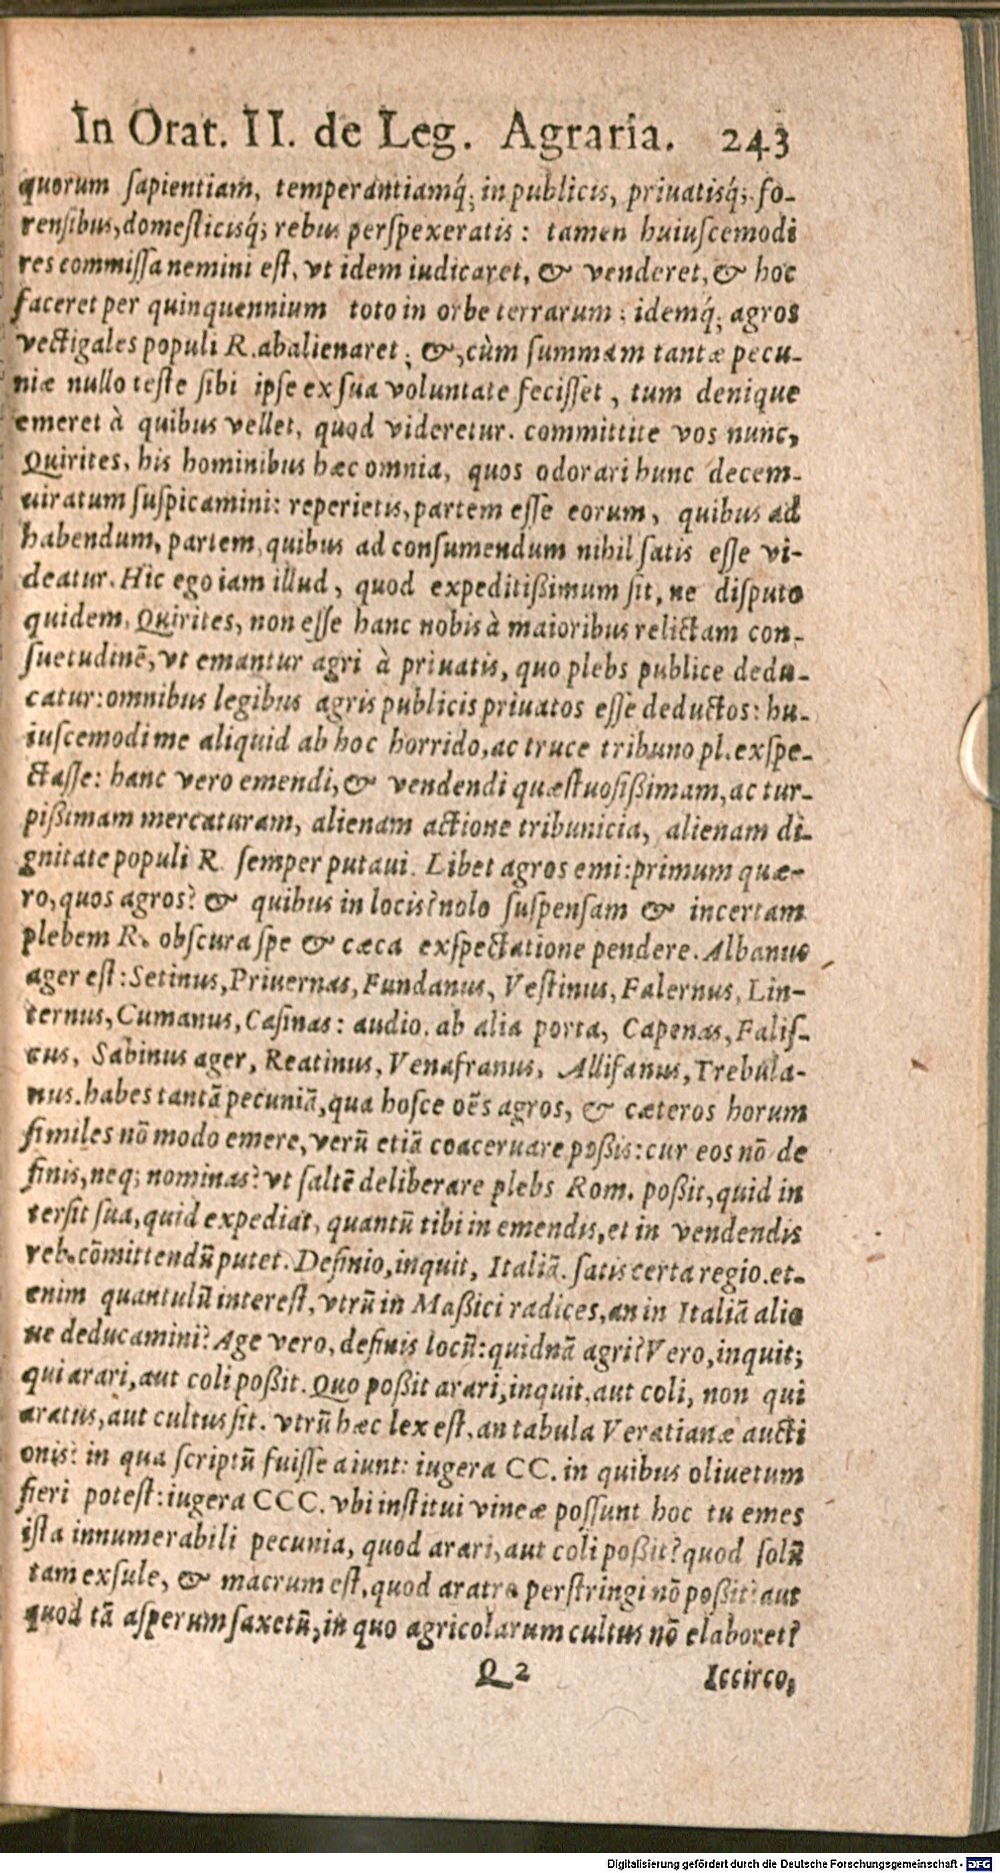 In Orat. II. de Leg. Agraria. 243
quorum ſapientiam, temperantiamq́; in publicis, priuatisq́; fo-
renſibus, domeſticisq́; rebus perſpexeratis: tamen huiuſcemodi
res commiſſa nemini eſt, vt idem iudicaret, & venderet, & hoc
faceret per quinquennium toto in orbe terrarum: idemq́; agros
vectigales populi R. abalienaret; &, cùm ſummam tantæ pecu-
niæ nullo teſte ſibi ipſe ex ſua voluntate feciſſet, tum denique
emeret à quibus vellet, quod videretur. committite vos nunc,
Quirites, his hominibus hæc omnia, quos odorari hunc decem-
uiratum ſuſpicamini: reperietis, partem eſſe eorum, quibus ad
habendum, partem, quibus ad conſumendum nihil ſatis eſſe vi-
deatur. Hic ego iam illud, quod expeditißimum ſit, ne diſputo
quidem, Quirites, non eſſe hanc nobis à maioribus relictam con-
ſuetudinē, vt emantur agri à priuatis, quo plebs publice dedu-
catur: omnibus legibus agris publicis priuatos eſſe deductos: hu-
iuſcemodi me aliquid ab hoc horrido, ac truce tribuno pl. exſpe-
ctaſſe: hanc vero emendi, & vendendi quæſtuoſißimam, ac tur-
pißimam mercaturam, alienam actione tribunicia, alienam di-
gnitate populi R. ſemper putaui. Libet agros emi: primum quæ-
ro, quos agros? & quibus in locis? nolo ſuſpenſam & incertam
plebem R. obſcura ſpe & cæca exſpectatione pendere. Albanus
ager eſt: Setinus, Priuernas, Fundanus, Veſtinus, Falernus, Lin-
ternus, Cumanus, Caſinas: audio. ab alia porta, Capenas, Faliſ-
cus, Sabinus ager, Reatinus, Venafranus, Allifanus, Trebula-
nus. habes tantā pecuniā, qua hoſce oēs agros, & cæteros horum
ſimiles nō modo emere, verū etiā coaceruare poßis: cur eos nō de
finis, neq; nominas? vt ſaltē deliberare plebs Rom. poßit, quid in
terſit ſua, quid expediat, quantū tibi in emendis, et in vendendis
reb. cōmittendū putet. Definio, inquit, Italiā. ſatis certa regio. et-
enim quantulū intereſt, vtrū in Maßici radices, an in Italiā alio
ue deducamini? Age vero, definis locū: quidnā agri? Vero, inquit;
qui arari, aut coli poßit. Quo poßit arari, inquit, aut coli, non qui
aratus, aut cultus ſit. vtrū hæc lex eſt, an tabula Veratianæ aucti
onis? in qua ſcriptū fuiſſe aiunt: iugera CC. in quibus oliuetum
fieri poteſt: iugera CCC. vbi inſtitui vineæ poſſunt hoc tu emes
iſta innumerabili pecunia, quod arari, aut coli poßit? quod ſolū
tam exſule, & macrum eſt, quod aratro perſtringi nō poßit? aut
quod tā aſperum ſaxetū, in quo agricolarum cultus nō elaboret?
Q 2 Iccirco,
Digitalisierung gefördert durch die Deutsche Forschungsgemeinschaft - DFG